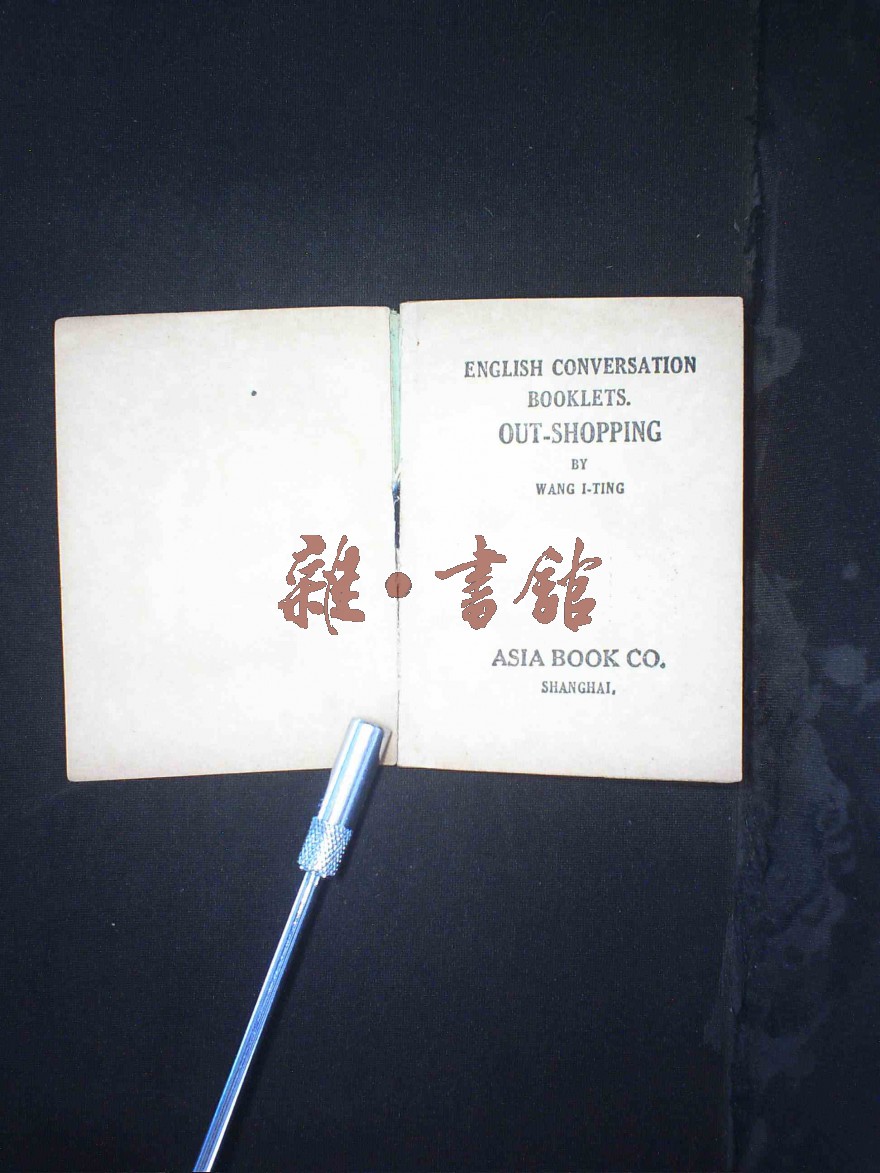 ENGLISH CONVERSATION
BOOKLETS.
OUT-SHOPPING
BY
WANG I-TING
雜·書館
ASIA BOOK CO.
SHANGHAI.